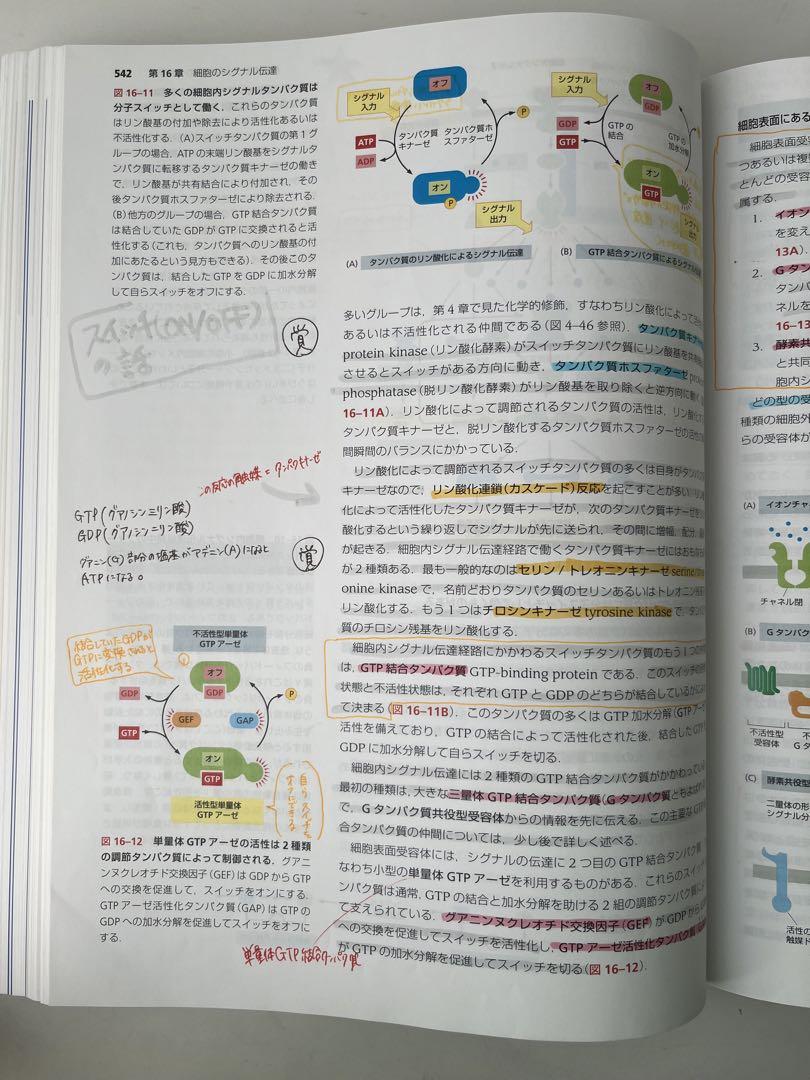 542 第16章 細胞のシグナル伝達
図16-11 多くの細胞内シグナルタンパク質は
分子スイッチとして働く．これらのタンパク質
はリン酸基の付加や除去により活性化あるいは
不活性化する．(A)スイッチタンパク質の第1グ
ループの場合，ATPの末端リン酸基をシグナルタ
ンパク質に転移するタンパク質キナーゼの働き
で，リン酸基が共有結合により付加され，その
後タンパク質ホスファターゼにより除去される．
(B)他方のグループの場合，GTP結合タンパク質
は結合していたGDPがGTPに交換されると活
性化する(これも，タンパク質へのリン酸基の付
加にあたるという見方もできる)．その後このタ
ンパク質は，結合したGTPをGDPに加水分解
して自らスイッチをオフにする．
スイッチ(ON/OFF)
の話
覚
この反応の触媒=タンパクキナーゼ
GTP(グアノシン三リン酸)
GDP(グアノシン二リン酸)
グアニン(G)部分の塩基がアデニン(A)になると
ATPになる。
覚
結合していたGDPが
GTPに変換されると
活性化する
不活性型単量体
GTPアーゼ
オフ
GDP
GDP
GEF
GAP
P
GTP
オン
GTP
活性型単量体
GTPアーゼ
自らスイッチを
オフにできる
図16-12 単量体GTPアーゼの活性は2種類
の調節タンパク質によって制御される．グアニ
ンヌクレオチド交換因子(GEF)はGDPからGTP
への交換を促進して，スイッチをオンにする．
GTPアーゼ活性化タンパク質(GAP)はGTPの
GDPへの加水分解を促進してスイッチをオフに
する．
単量体GTP結合タンパク質
シグナル
入力
オフ
ATP
ADP
タンパク質
キナーゼ
タンパク質ホ
スファターゼ
P
オン
P
シグナル
出力
(A) タンパク質のリン酸化によるシグナル伝達
シグナル
入力
オフ
GDP
GDP
GTP
GTPの
結合
GTPの
加水分解
P
オン
GTP
シグナル
出力
(B) GTP結合タンパク質によるシグナル
多いグループは，第4章で見た化学的修飾，すなわちリン酸化によって活
あるいは不活性化される仲間である(図4-46参照)．タンパク質キナー
protein kinase(リン酸化酵素)がスイッチタンパク質にリン酸基を共有
させるとスイッチがある方向に動き，タンパク質ホスファターゼ
phosphatase(脱リン酸化酵素)がリン酸基を取り除くと逆方向に動く
16-11A)．リン酸化によって調節されるタンパク質の活性は，リン酸化す
タンパク質キナーゼと，脱リン酸化するタンパク質ホスファターゼの活性の
間瞬間のバランスにかかっている．
リン酸化によって調節されるスイッチタンパク質の多くは自身がタンパ
キナーゼなので，リン酸化連鎖(カスケード)反応を起こすことが多い
化によって活性化したタンパク質キナーゼが，次のタンパク質キナーゼを
酸化するという繰り返しでシグナルが先に送られ，その間に増幅，配分，
が起きる．細胞内シグナル伝達経路で働くタンパク質キナーゼにはおもな
が2種類ある．最も一般的なのはセリン/トレオニンキナーゼserine/
onine kinaseで，名前どおりタンパク質のセリンあるいはトレオニン残基を
リン酸化する．もう1つはチロシンキナーゼtyrosine kinaseで，タンパ
質のチロシン残基をリン酸化する．
細胞内シグナル伝達経路にかかわるスイッチタンパク質のもう1つの
は，GTP結合タンパク質GTP-binding proteinである．このスイッチの
状態と不活性状態は，それぞれGTPとGDPのどちらが結合しているかによっ
て決まる(図16-11B)．このタンパク質の多くはGTP加水分解(GTPアーゼ)
活性を備えており，GTPの結合によって活性化された後，結合したGTPを
GDPに加水分解して自らスイッチを切る．
細胞内シグナル伝達には2種類のGTP結合タンパク質がかかわってい
最初の種類は，大きな三量体GTP結合タンパク質(Gタンパク質ともよば
で，Gタンパク質共役型受容体からの情報を先に伝える．この主要なGTP
合タンパク質の仲間については，少し後で詳しく述べる．
細胞表面受容体には，シグナルの伝達に2つ目のGTP結合タンパク質
なわち小型の単量体GTPアーゼを利用するものがある．これらのスイッチ
ンパク質は通常，GTPの結合と加水分解を助ける2組の調節タンパク質に
て支えられている．グアニンヌクレオチド交換因子(GEF)がGDPから
への交換を促進してスイッチを活性化し，GTPアーゼ活性化タンパク質
がGTPの加水分解を促進してスイッチを切る(図16-12)．
細胞表面にある
細胞表面受容
つあるいは複
とんどの受容
属する．
1. イオン
を変え
13A)．
2. Gタン
タンパ
ネルを
16-13
3. 酵素共
と共同
胞内シ
どの型の受
種類の細胞外
らの受容体が
(A) イオンチャ
チャネル閉
(B) Gタンパ
不活性型
受容体
不
G
(C) 酵素共役型
二量体の形
シグナル分
活性の
触媒ド